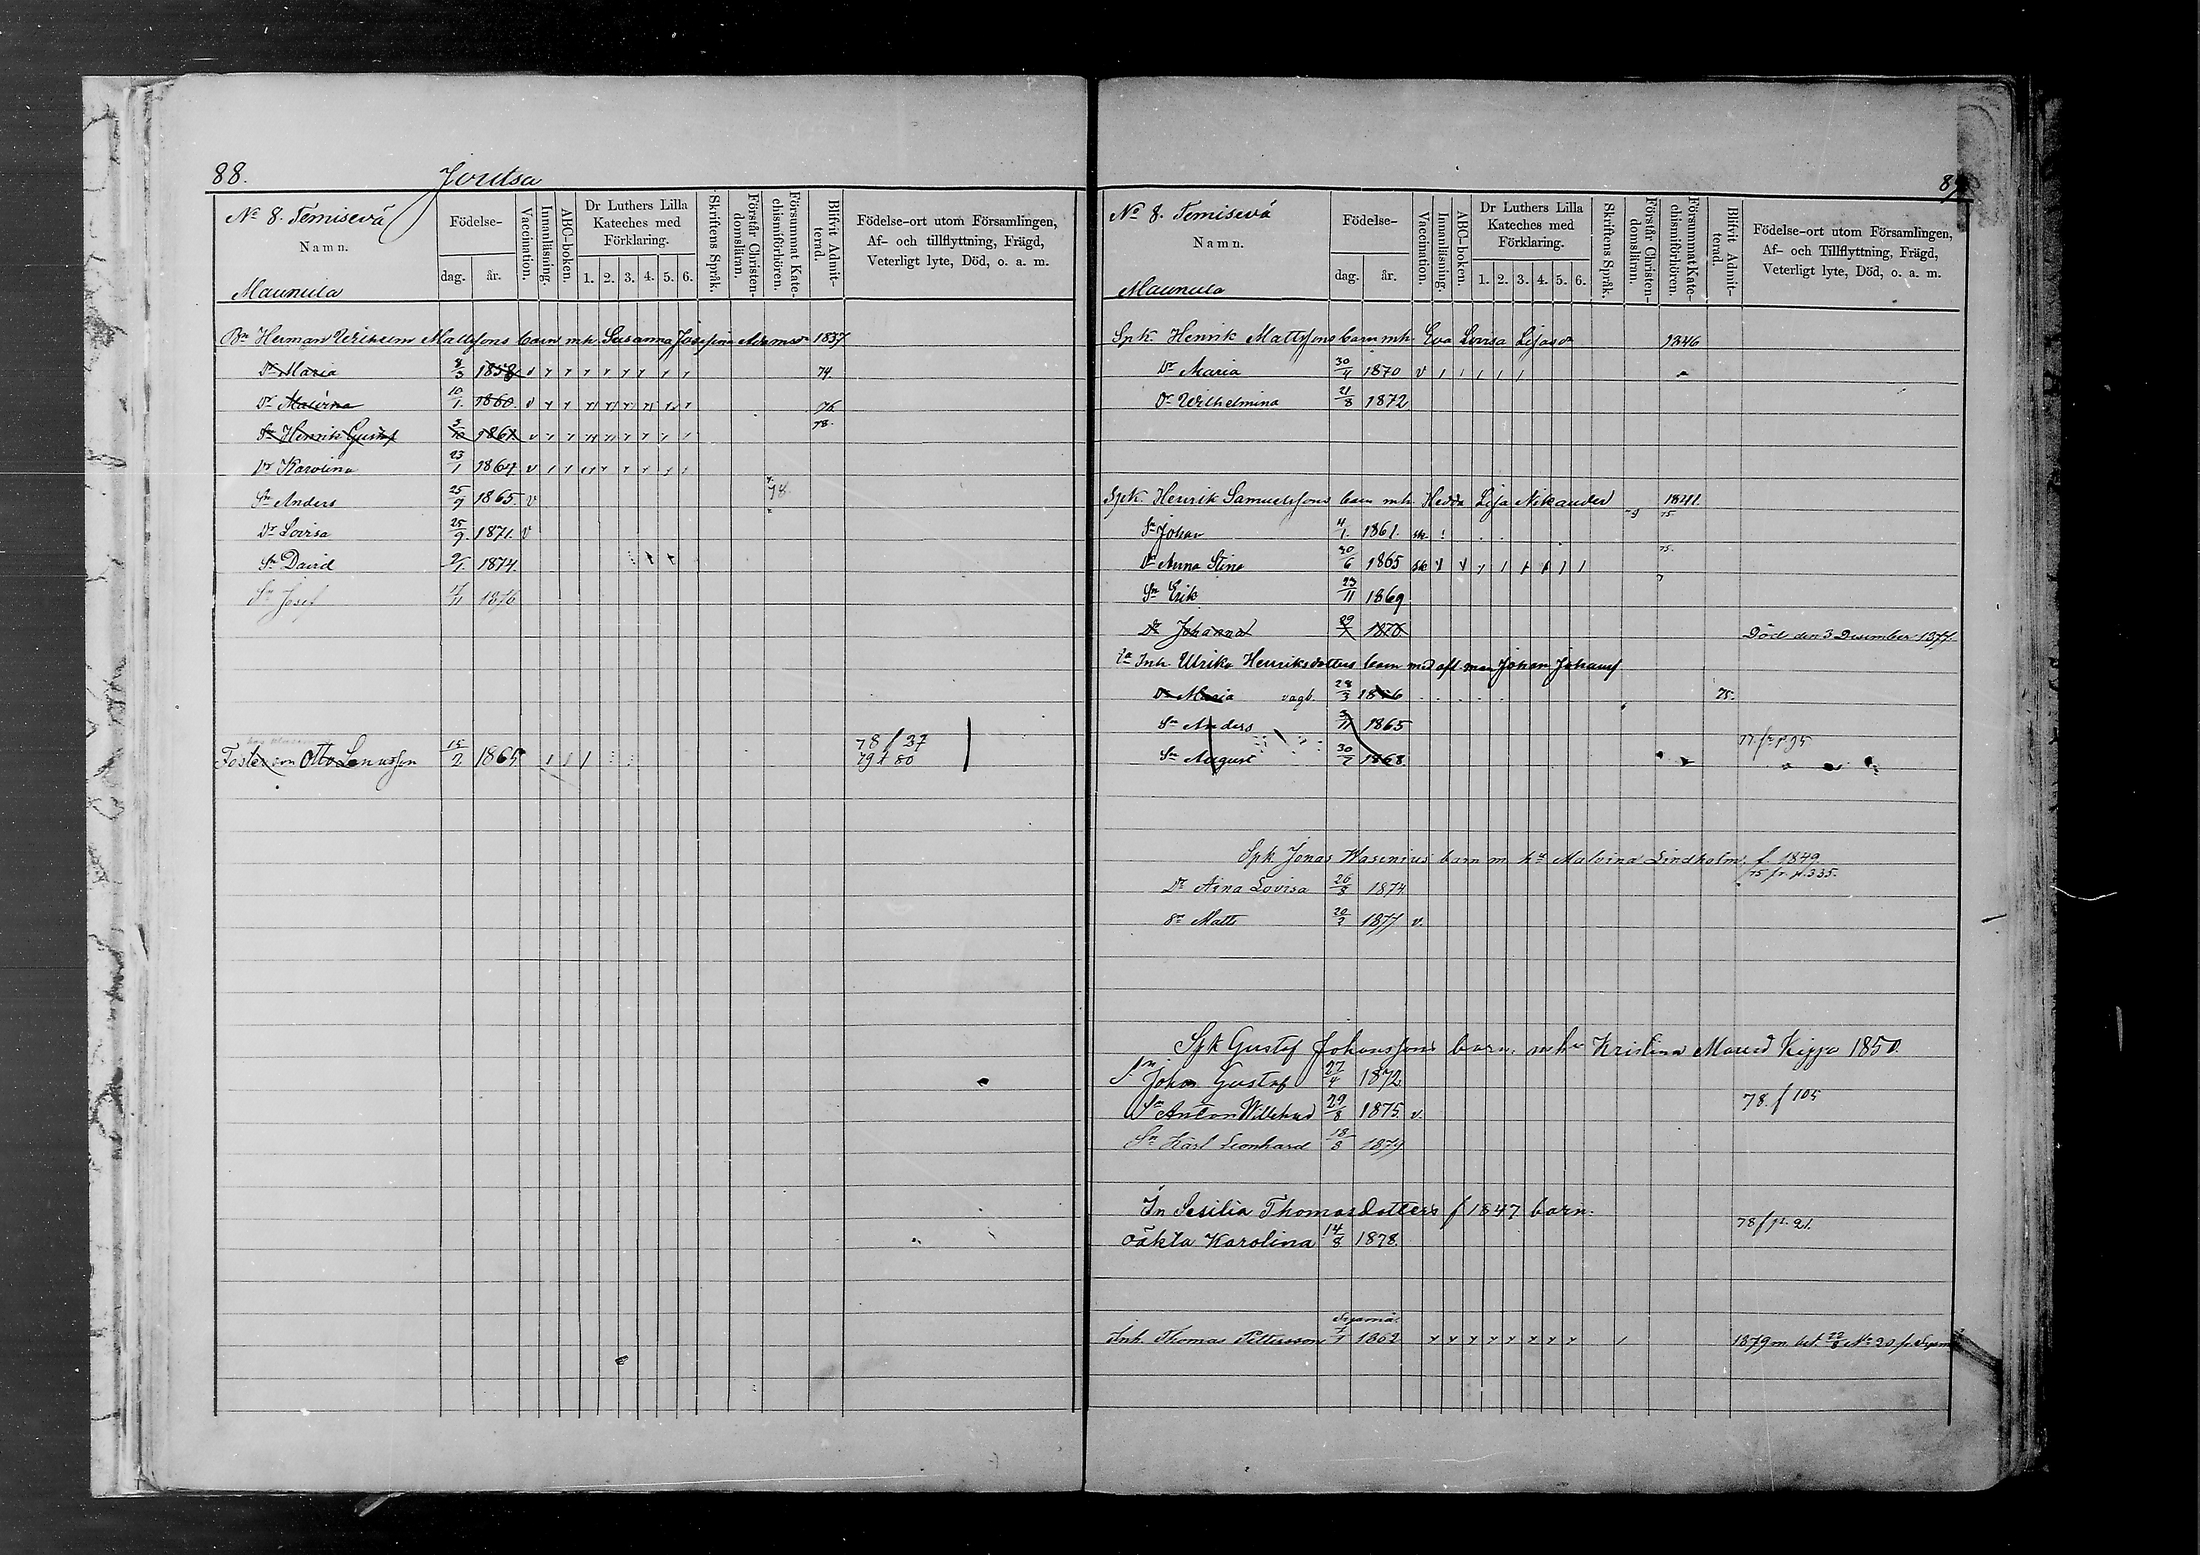 88.
Joutsa
No 8. Temisevä
Namn.
Maunula
Födelse-
dag.
år.
Vaccination.
Innanläsning.
ABC-boken.
Dr Luthers Lilla
Kateches med
Förklaring.
1. 2. 3. 4. 5. 6.
Skriftens Språk.
Förstår Christen-
domsläran.
Försummat Kate-
chismiförhören.
Blifvit Admit-
terad.
Födelse-ort utom Församlingen,
Af- och tillflyttning, Frägd,
Veterligt lyte, Död, o. a. m.
Bn Herman Wilhelm Mattssons barn mh. Susanna Josefina Adamsdr 1837
Dr Maria 8/3 1858 v 74.
Dr Malvina 10/1. 1860. v 76.
Sn Henrik Gustaf 3/10 1861 v 78.
Dr Karolina 23/1 1864 v
Sn Anders 25/9 1865. v 78.
Dr Lovisa 25/9. 1871. v
Sn David 2/1. 1874.
Sn Josef 4/11 1876
Fosterson Otto 15/2 1865 78 f 37
79 t 80
89
No 8. Temisevä
Namn.
Maunula
Födelse-
dag.
år.
Vaccination.
Innanläsning.
ABC-boken.
Dr Luthers Lilla
Kateches med
Förklaring.
1. 2. 3. 4. 5. 6.
Skriftens Språk.
Förstår Christen-
domsläran.
Försummat Kate-
chismiförhören.
Blifvit Admit-
terad.
Födelse-ort utom Församlingen,
Af- och Tillflyttning, Frägd,
Veterligt lyte, Död, o. a. m.
Spk. Henrik Mattssons barn mh. Eva Lovisa 1846
Dr Maria 30/4 1870 v
Dr Wilhelmina 21/8 1872
Spk. Henrik Samuelssons barn mh. Hedda Lisa Nikander 1841.
Sn Johan 4/1. 1861. sk. 75
Dr Anna Stina 30/6 1865 sk 75.
Sn Erik 23/11 1869
Dr Johanna 29/ 1876 Död den 3 Desember 1877
Inh. Ulrika Henriksdotters barn med afl. man Johan Johanss
Dr Maria vagb. 28/3 1856 75.
Sn Anders 3/11 1865
Sn August 30/7 1868. 77 fr p 95
Spk Jonas Wasenius barn m hu Malvina Lindholm f. 1849
Dr Aina Lovisa 26/8 1874 75 fr. p. 335.
Sn Matts 20/2 1877 v.
Spk Gustaf Johanssons barn. mhu Kristina Mariad Kippo 1850.
Sn Johan Gustaf 27/4 1872
Sn Anton Willehad 29/8 1875. v. 78. f 105
Sn Karl Leonhard 18/8 1879
In Sesilia Thomasdotters f 1847 barn.
Oäkta Karolina 14/8 1878. 78 f p. 21.
Sysmä.
Inh. Thomas Pettersson 1862 1879 m. bet. 22/8 No 20 fr. Sysm